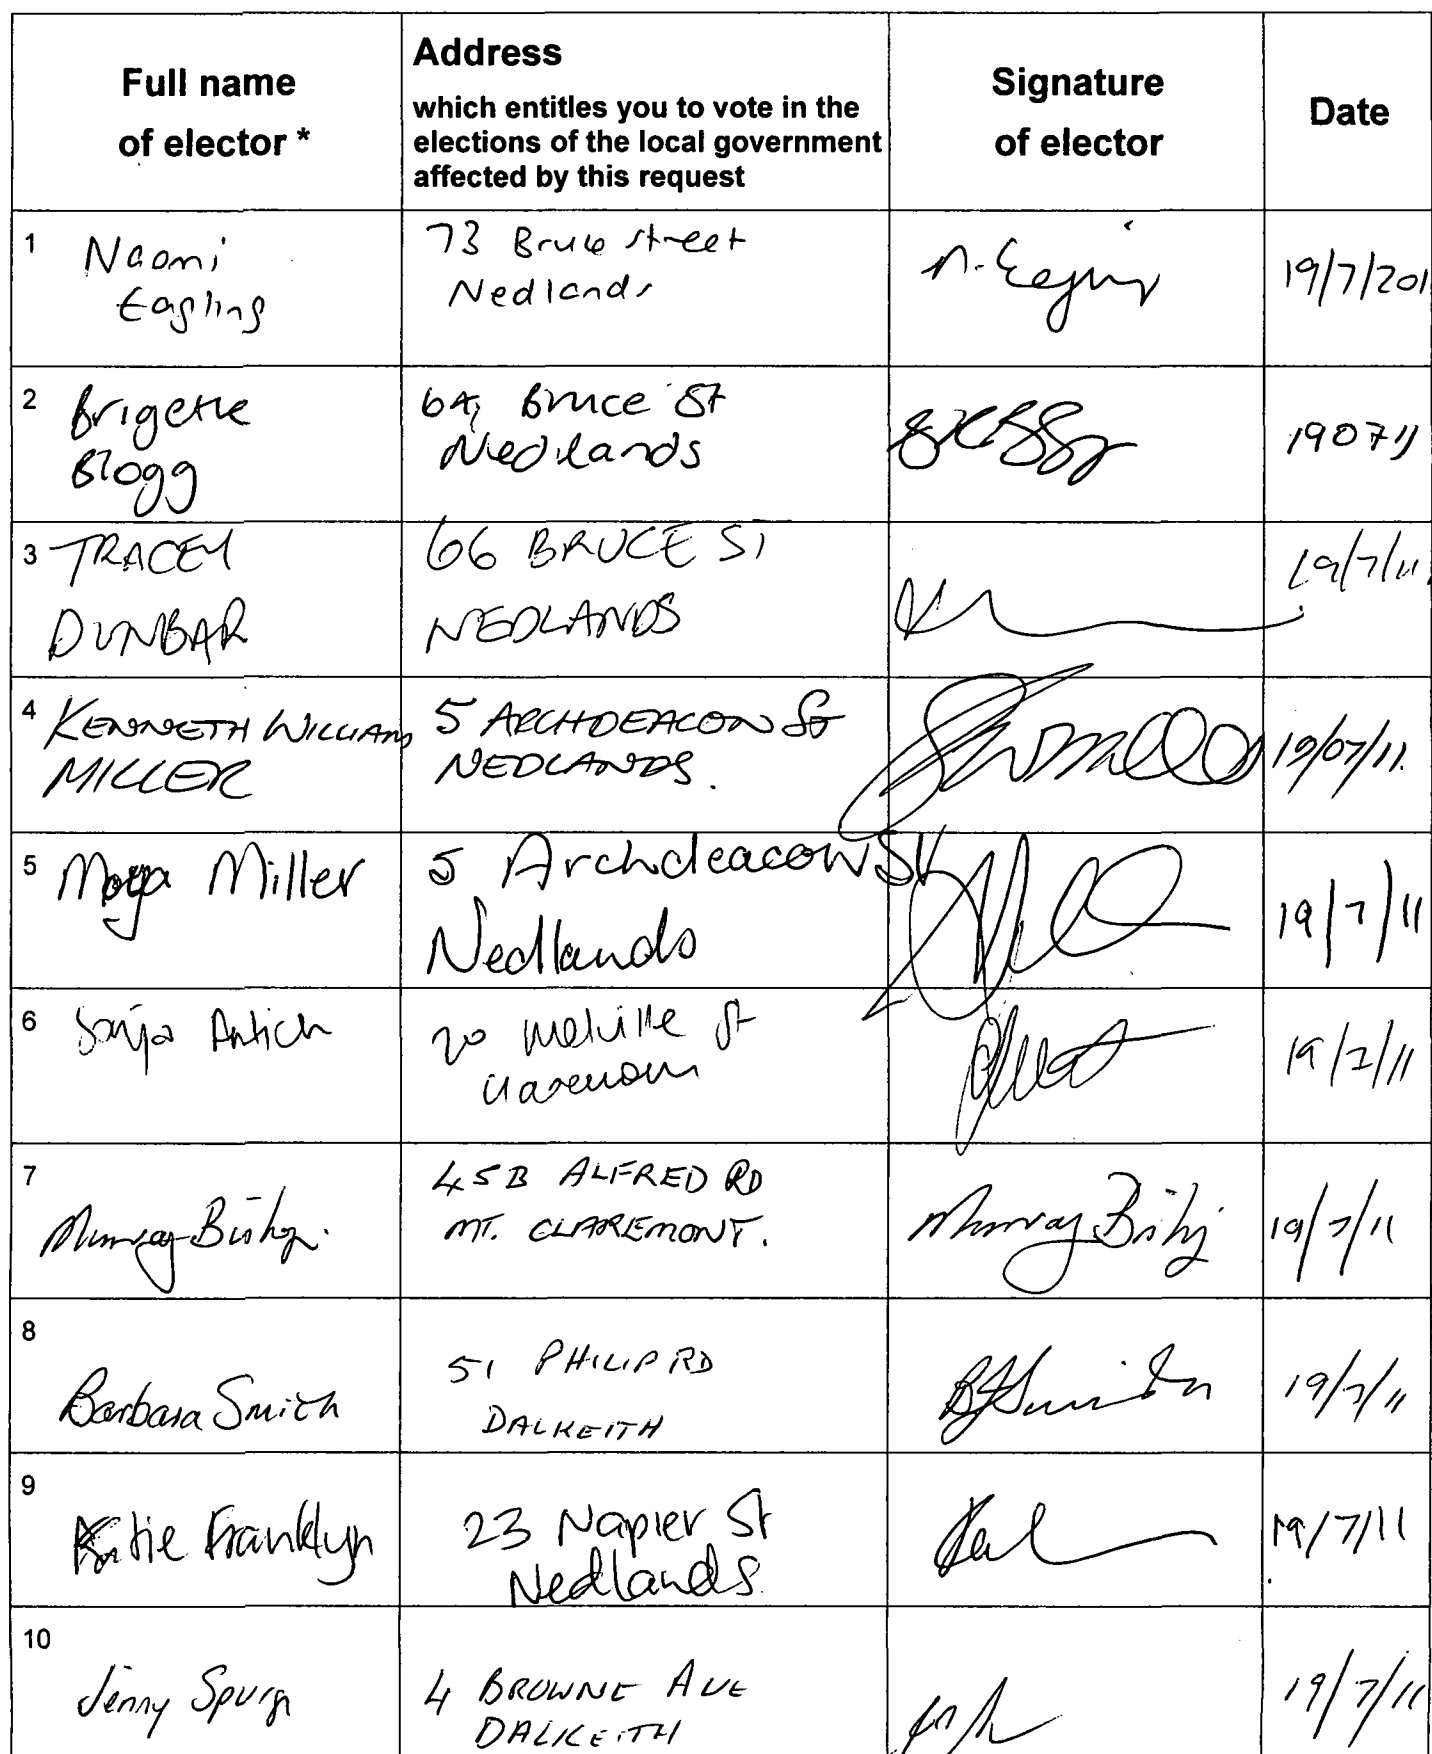 Full name
of elector *
Address
which entitles you to vote in the
elections of the local government
affected by this request
Signature
of elector
Date
1
Naomi
Eagling
73 Bruce street
Nedlands
19/7/201
2
Brigette
Blogg
64, Bruce St
Nedlands
190711
3
TRACEY
DUNBAR
66 BRUCE ST
NEDLANDS
19/7/11
4
KENNETH WILLIAM
MILLER
5 ARCHDEACON St
NEDLANDS.
19/07/11.
5
Moya Miller
5 Archdeacon St
Nedlands
19/7/11
6
Sonja Antich
20 Melville St
Claremont
19/7/11
7
Murray Bishop.
45B ALFRED RD
MT. CLAREMONT.
Murray Bishop
19/7/11
8
Barbara Smith
51 PHILIP RD
DALKEITH
BJSmith
19/7/11
9
Katie Franklyn
23 Napier St
Nedlands
19/7/11
10
Jenny Spurge
4 BROWNE AVE
DALKEITH
19/7/11